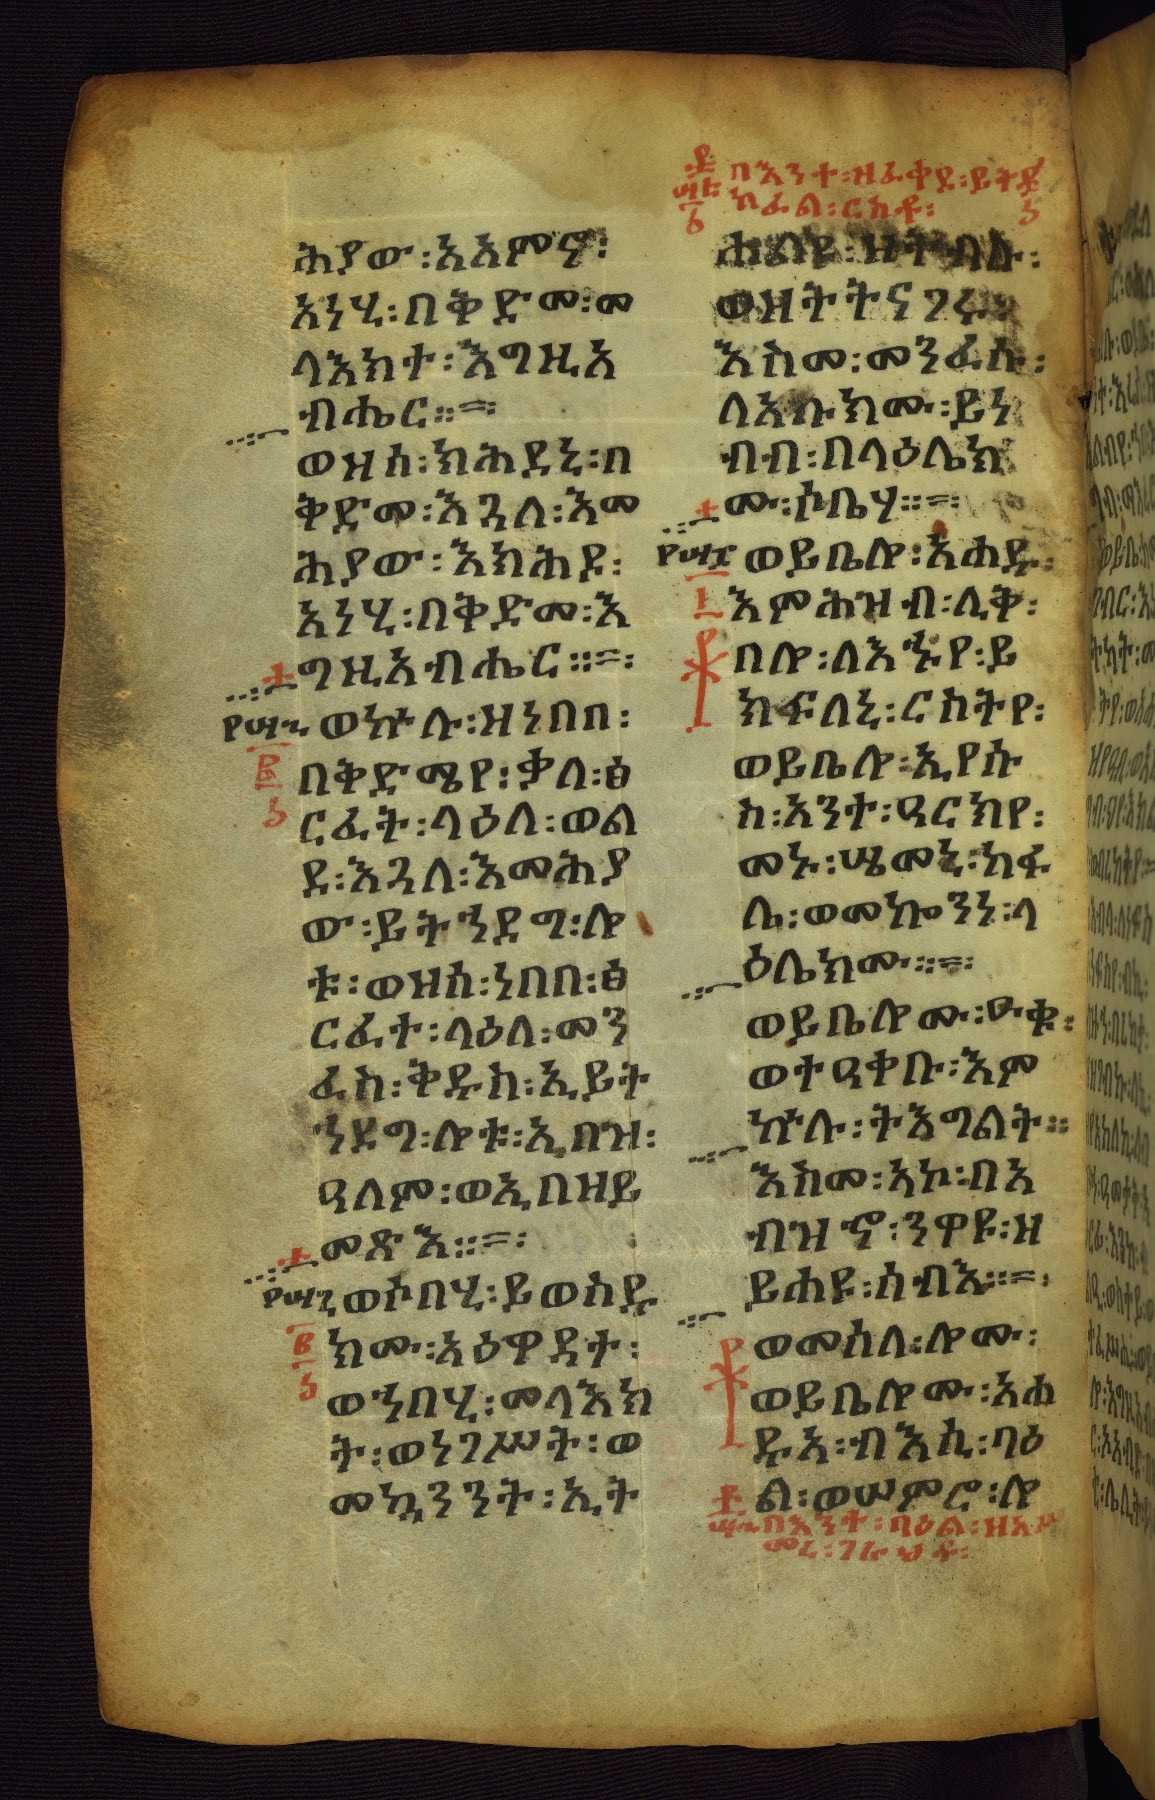 ሕያው፡አአምኖ፡
አነሂ፡በቅድመ፡መ
ላእክተ፡እግዚአ
ብሔር፡፡=፡
ወዝሰ፡ክሕደኒ፡በ
ቅድመ፡እጓለ፡እመ
ሕያው፡እክሕዶ፡
አነሂ፡በቅድመ፡እ
ግዚአብሔር፡፡=፡
ወኵሉ፡ዘነበበ፡
በቅድሜየ፡ቃለ፡ፅ
ርፈት፡ላዕለ፡ወል
ደ፡እጓለ፡እመሕያ
ው፡ይትኀደግ፡ሎ
ቱ፡ወዝሰ፡ነበበ፡ፅ
ርፈተ፡ላዕለ፡መን
ፈስ፡ቅዱስ፡ኢይት
ኀደግ፡ሎቱ፡ኢበዝ፡
ዓለም፡ወኢበዘይ
መጽእ፡፡=፡
ወሶበሂ፡ይወስዱ
ክሙ፡አዕዋዳተ፡
ወኀበሂ፡መላእክ
ት፡ወነገሥት፡ወ
መኳንንት፡ኢት
በእንተ፡ዘፈቀደ፡ይት
ከፈል፡ርስቶ፡
ሐልዩ፡ዘትብሉ፡
ወዘትትናገሩ፡
እስመ፡መንፈሱ፡
ለአቡክሙ፡ይነ
ብብ፡በላዕሌክ
ሙ፡ሶቤሃ፡፡=፡
ወይቤሎ፡አሐዱ፡
እምሕዝብ፡ሊቅ፡
በሎ፡ለእኁየ፡ይ
ክፍለኒ፡ርስትየ፡
ወይቤሎ፡ኢየሱ
ስ፡አንተ፡ዓርክየ፡
መኑ፡ሤመኒ፡ከፋ
ሌ፡ወመኰንነ፡ላ
ዕሌክሙ፡፡=፡
ወይቤሎሙ፡ዑቁ፡
ወተዓቀቡ፡እም
ኵሉ፡ትእግልት፡፡
እስመ፡አኮ፡በአ
ብዝኆ፡ንዋዩ፡ዘ
ይሐዩ፡ሰብእ፡፡=፡
ወመሰለ፡ሎሙ፡
ወይቤሎሙ፡አሐ
ዱአ፡ብእሲ፡ባዕ
ል፡ወሠምሮ፡ሎ
በእንተ፡ባዕል፡ዘአሥ
መረ፡ገራህቶ፡